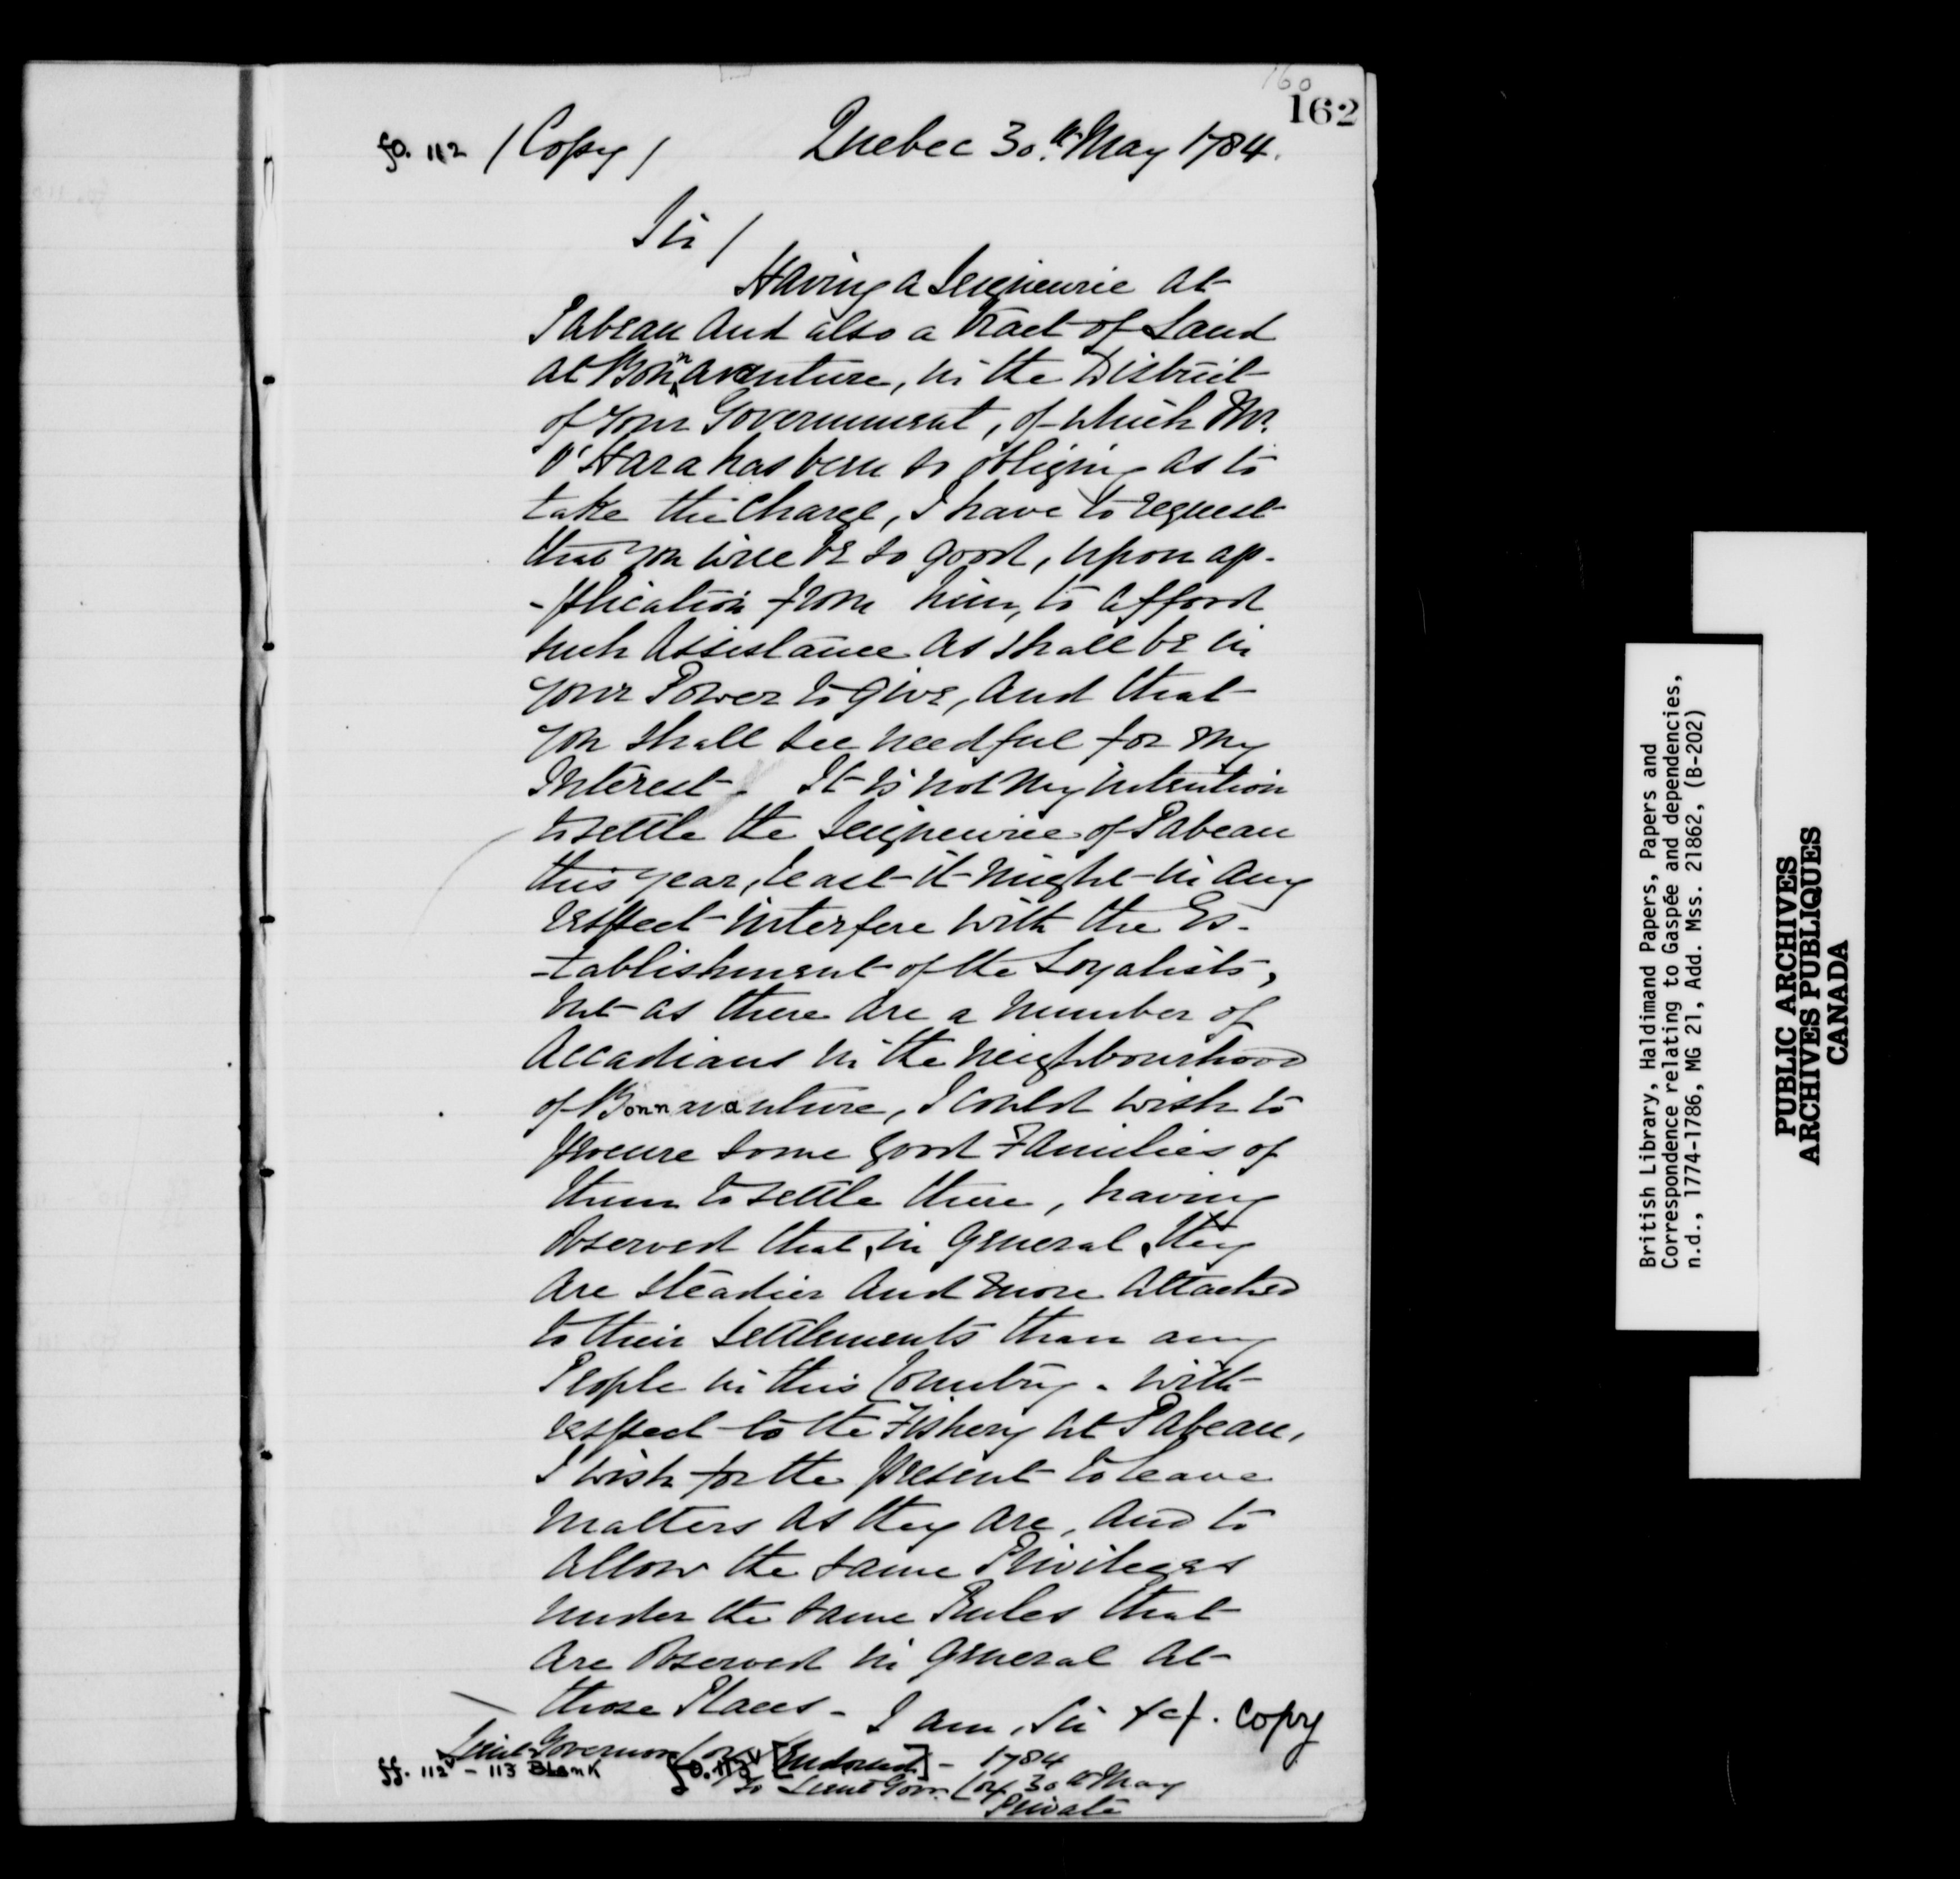 160
162
fo. 112 / Copy / Quebec 30.th May 1784.
Sir /
Having a Seigneurie at
Pabeau and also a tract of Land
at Bonnavanture, in the District
of your Government, of which Mr.
O'Hara has been so obliging as to
take the Charge, I have to request
that you will be so good, upon ap-
-plication from him, to afford
such Assistance as shall be in
your Power to give, and that
you shall see needful for my
Interest. It is not my intention
to settle the Seigneurie of Pabeau
this year, least it might in any
respect interfere with the Es-
-tablishment of the Loyalists,
but as there are a number of
Accadians in the neighbourhood
of Bonnavanture, I could wish to
procure some good Families of
them to settle there, having
observed that, in general, they
are steadier and more attached
to their Settlements than any
People in this Country. With
respect to the Fishery at Pabeau,
I wish for the present to leave
matters as they are, and to
allow the same Privileges
under the same Rules that
are observed in general at
those Places - I am, Sir &c. Copy
Lieut Governor Cox
ff. 112v - 113 Blank fo. 113v [Endorsed] - 1784
To Lieut Govr. Cox 30th May
Private
British Library, Haldimand Papers, Papers and
Correspondence relating to Gaspée and dependencies,
n.d., 1774-1786, MG 21, Add. Mss. 21862, (B-202)
PUBLIC ARCHIVES
ARCHIVES PUBLIQUES
CANADA